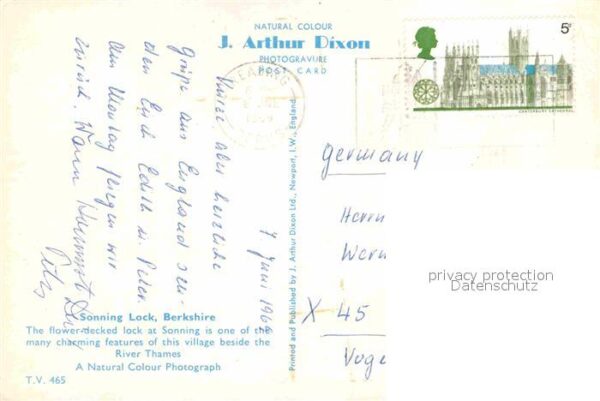 NATURAL COLOUR
J. Arthur Dixon
PHOTOGRAVURE
POST CARD
5d
CANTERBURY CATHEDRAL
7 Juni 1969
Kurze aber herzliche
Grüße aus England sen-
den Euch Edith u. Peter.
Am Montag fliegen wir
zurück. Wann kommst Du,
Peter
Printed and Published by J. Arthur Dixon Ltd., Newport, I.W., England.
Germany
Herrn
Wern
X 45
Voge
privacy protection
Datenschutz
Sonning Lock, Berkshire
The flower-decked lock at Sonning is one of the
many charming features of this village beside the
River Thames
A Natural Colour Photograph
T.V. 465